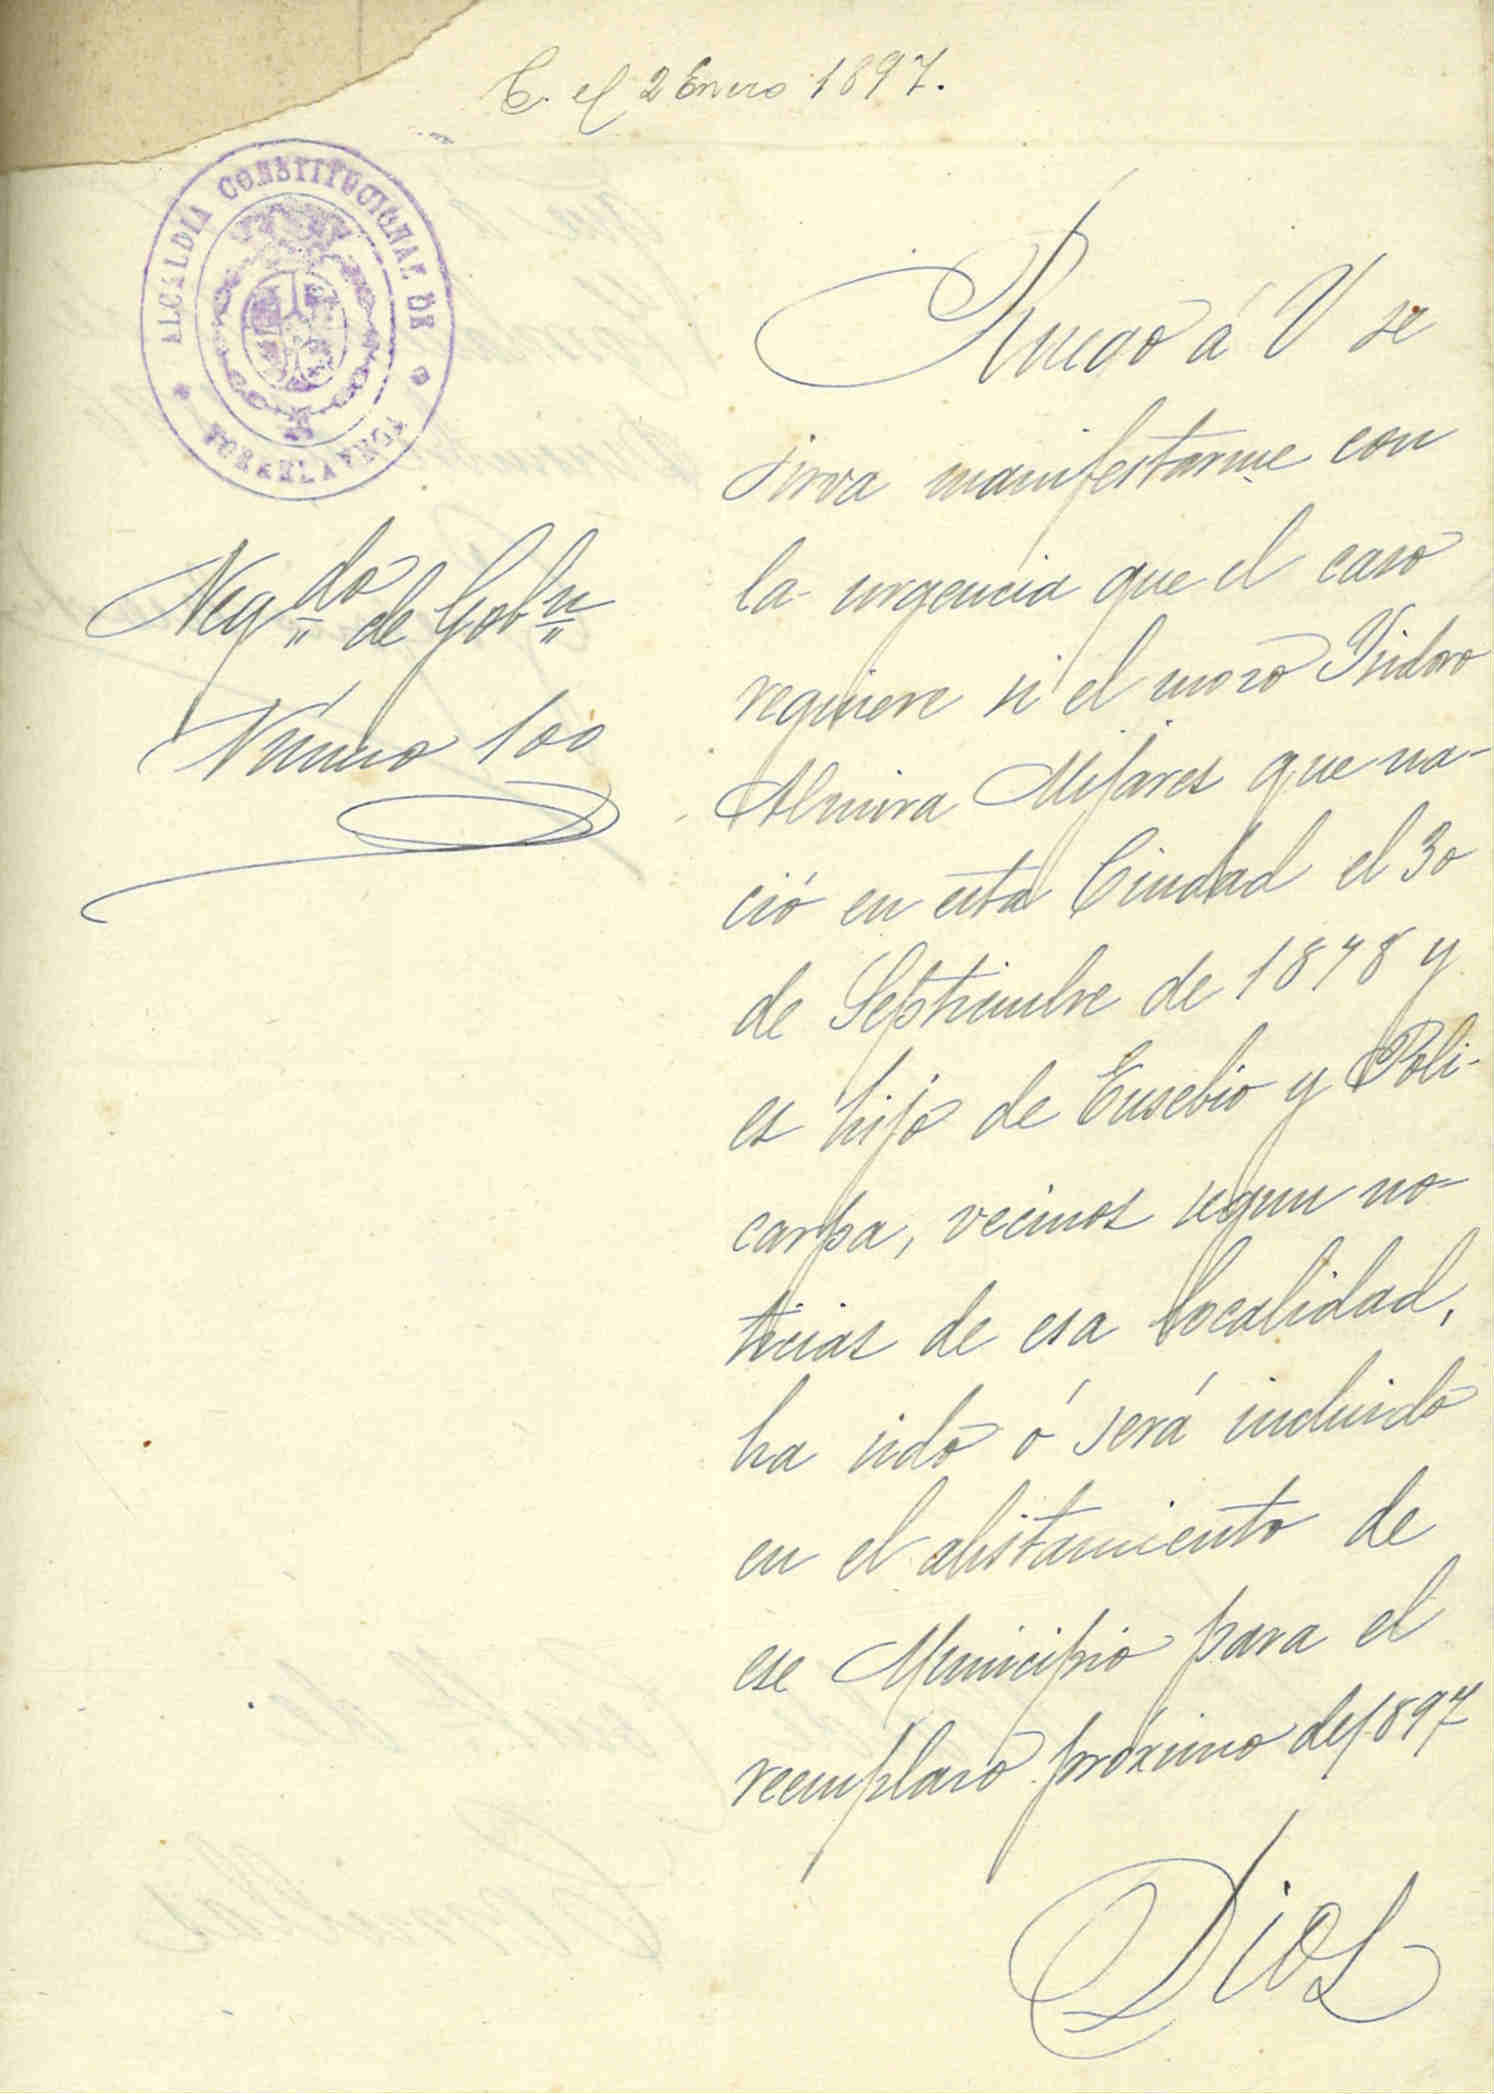 C. el 2 Enero 1897.
ALCALDÍA CONSTITUCIONAL DE
TORRELAVEGA
Negdo de Gobn
Número 100
Ruego á V se
sirva manifestarme con
la urgencia que el caso
requiere si el mozo Ysidoro
Almira Mijares que na-
ció en esta Ciudad el 30
de Septiembre de 1878 y
es hijo de Eusebio y Poli-
carpa, vecinos segun no-
ticias de esa localidad,
ha sido ó será incluido
en el alistamiento de
ese Municipio para el
reemplazo próximo de 1897
Dios